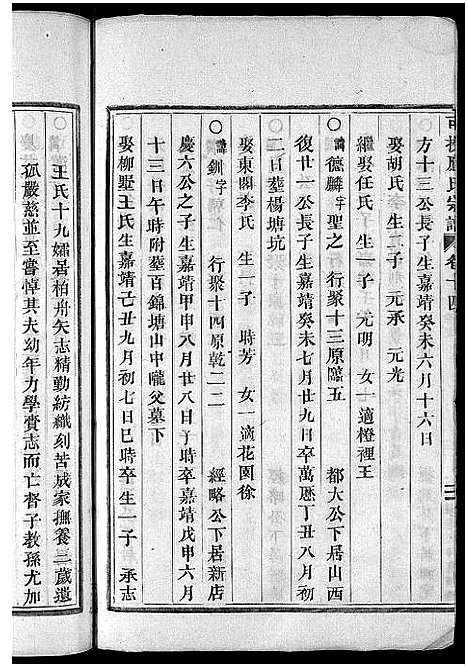 可投應氏宗譜 卷十四
方十三公長子生嘉靖癸未六月十六日
娶胡氏 生二子 元承 元光
繼娶任氏 生一子 元明 女一適橙裡王
○諱德麟字聖之 行聚十三原臨五 都大公下居山西
復廿一公長子生嘉靖癸未七月廿九日卒萬厯丁丑八月
二日葬楊塘坑
娶東閣李氏 生一子 時芳 女一適花園徐
○諱釧字 行聚十四原乾二二 經略公下居新店
慶六公之子生嘉靖甲申八月廿八日子時卒嘉靖戊申六月
十三日午時附葬百錦塘山中隴父墓下
娶柳墅王氏生嘉靖己丑九月初七日巳時卒生一子 承志
王氏十九孀居柏舟矢志精勤紡織刻苦成家撫養三歲遺
孤嚴慈並至嘗悼其夫幼年力學賫志而亡督子教孫尤加